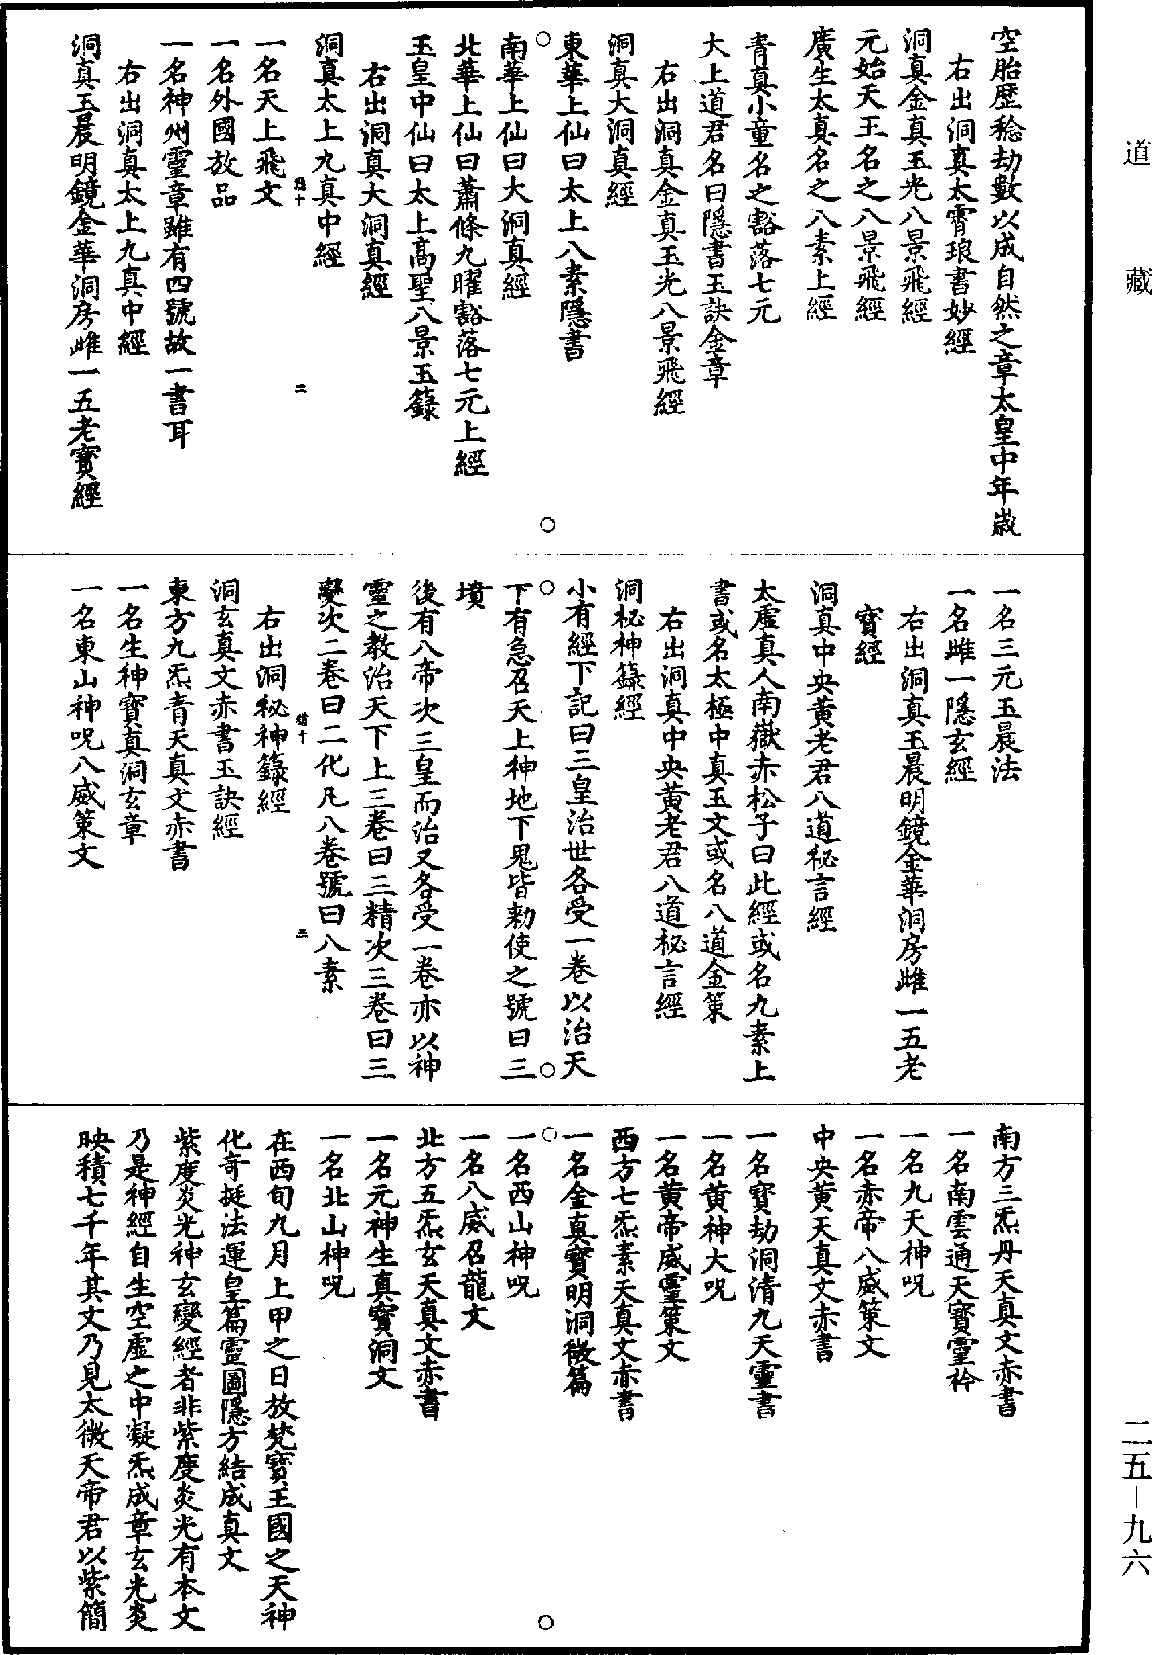 道藏
空胎歷稔劫數以成自然之章太皇中年歲
右出洞真太霄琅書妙經
洞真金真玉光八景飛經
元始天王名之八景飛經
廣生太真名之八素上經
青真小童名之豁落七元
大上道君名曰隱書玉訣金章
右出洞真金真玉光八景飛經
洞真大洞真經
東華上仙曰太上八素隱書
南華上仙曰大洞真經
北華上仙曰蕭條九曜豁落七元上經
玉皇中仙曰太上高聖八景玉籙
右出洞真大洞真經
洞真太上九真中經
二
一名天上飛文
一名外國放品
一名神州靈章雖有四號故一書耳
右出洞真太上九真中經
洞真玉晨明鏡金華洞房雌一五老寶經
一名三元玉晨法
一名雌一隱玄經
右出洞真玉晨明鏡金華洞房雌一五老
寶經
洞真中央黃老君八道祕言經
太虛真人南嶽赤松子曰此經或名九素上
書或名太極中真玉文或名八道金策
右出洞真中央黃老君八道祕言經
洞祕神籙經
小有經下記曰三皇治世各受一卷以治天
下有急召天上神地下鬼皆勑使之號曰三
墳
後有八帝次三皇而治又各受一卷亦以神
靈之教治天下上三卷曰三精次三卷曰三
變次二卷曰二化凡八卷號曰八素
三
右出洞祕神籙經
洞玄真文赤書玉訣經
東方九炁青天真文赤書
一名生神寶真洞玄章
一名東山神呪八威策文
南方三炁丹天真文赤書
一名南雲通天寶靈衿
一名九天神呪
一名赤帝八威策文
中央黃天真文赤書
一名寶劫洞清九天靈書
一名黃神大呪
一名黃帝威靈策文
西方七炁素天真文赤書
一名金真寶明洞微篇
一名西山神呪
一名八威召龍文
北方五炁玄天真文赤書
一名元神生真寶洞文
一名北山神呪
在西旬九月上甲之日放梵寶王國之天神
化奇挺法運皇篇靈圖隱方結成真文
紫度炎光神玄變經者非紫度炎光有本文
乃是神經自生空虛之中凝炁成章玄光炎
映積七千年其文乃見太微天帝君以紫簡
二五—九六